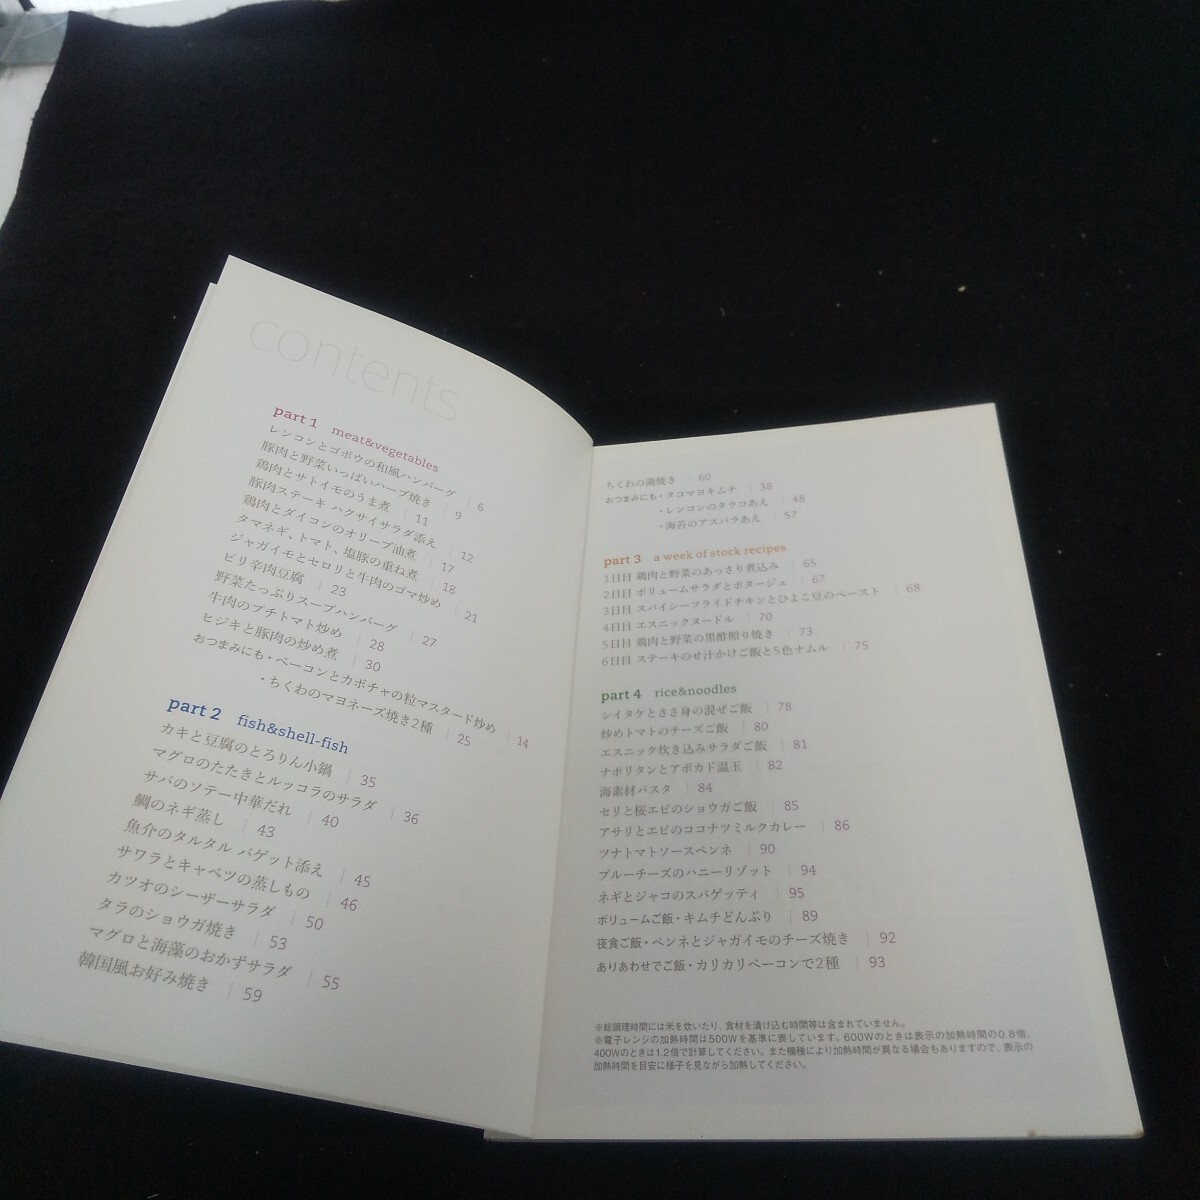 contents
part 1 meat&vegetables
レンコンとゴボウの和風ハンバーグ | 6
豚肉と野菜いっぱいハーブ焼き | 9
鶏肉とサトイモのうま煮 | 11
豚肉ステーキ ハクサイサラダ添え | 12
鶏肉とダイコンのオリーブ油煮 | 17
タマネギ、トマト、塩豚の重ね煮 | 18
ジャガイモとセロリと牛肉のゴマ炒め | 21
ピリ辛肉豆腐 | 23
野菜たっぷりスープハンバーグ | 27
牛肉のプチトマト炒め | 28
ヒジキと豚肉の炒め煮 | 30
おつまみにも・ベーコンとカボチャの粒マスタード炒め | 14
・ちくわのマヨネーズ焼き2種 | 25
part 2 fish&shell-fish
カキと豆腐のとろりん小鍋 | 35
マグロのたたきとルッコラのサラダ | 36
サバのソテー中華だれ | 40
鯛のネギ蒸し | 43
魚介のタルタル バゲット添え | 45
サワラとキャベツの蒸しもの | 46
カツオのシーザーサラダ | 50
タラのショウガ焼き | 53
マグロと海藻のおかずサラダ | 55
韓国風お好み焼き | 59
ちくわの蒲焼き | 60
おつまみにも・タコマヨキムチ | 38
・レンコンのタラコあえ | 48
・海苔のアスパラあえ | 57
part 3 a week of stock recipes
1日目 鶏肉と野菜のあっさり煮込み | 65
2日目 ボリュームサラダとポタージュ | 67
3日目 スパイシーフライドチキンとひよこ豆のペースト | 68
4日目 エスニックヌードル | 70
5日目 鶏肉と野菜の黒酢照り焼き | 73
6日目 ステーキのせ汁かけご飯と5色ナムル | 75
part 4 rice&noodles
シイタケとささ身の混ぜご飯 | 78
炒めトマトのチーズご飯 | 80
エスニック炊き込みサラダご飯 | 81
ナポリタンとアボカド温玉 | 82
海素材パスタ | 84
セリと桜エビのショウガご飯 | 85
アサリとエビのココナツミルクカレー | 86
ツナトマトソースペンネ | 90
ブルーチーズのハニーリゾット | 94
ネギとジャコのスパゲッティ | 95
ボリュームご飯・キムチどんぶり | 89
夜食ご飯・ペンネとジャガイモのチーズ焼き | 92
ありあわせでご飯・カリカリベーコンで2種 | 93
※総調理時間には米を炊いたり、食材を漬け込む時間等は含まれていません。
※電子レンジの加熱時間は500Wを基準に表しています。600Wのときは表示の加熱時間の0.8倍、
400Wのときは1.2倍で計算してください。また機種により加熱時間が異なる場合もありますので、表示の
加熱時間を目安に様子を見ながら加熱してください。